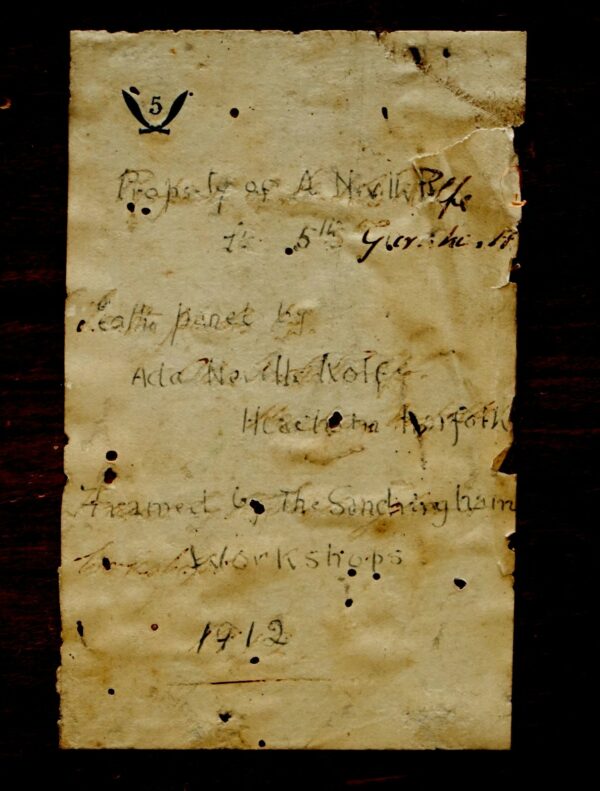 5
Property of A Neville Rolfe
5th Gurkha
panel by
Ada Neville Rolfe
Heacham Norfolk
Framed by The Sandringham
Workshops
1912